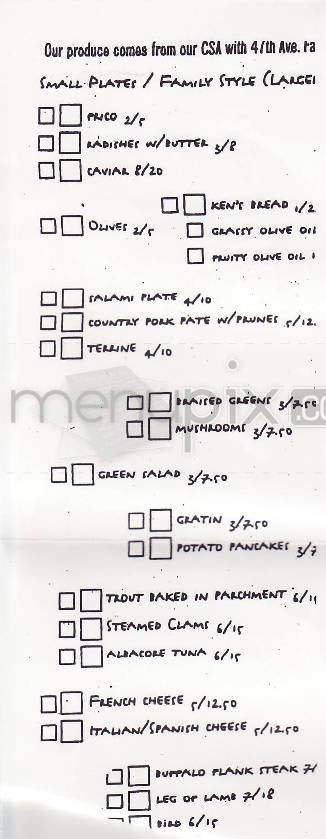 Our produce comes from our CSA with 47th Ave. Fa
SMALL PLATES / FAMILY STYLE (LARGER
FRICO 2/5
RADISHES W/BUTTER 3/8
CAVIAR 8/20
KEN'S BREAD 1/2
OLIVES 2/5
GRASSY OLIVE OIL
FRUITY OLIVE OIL 1
SALAMI PLATE 4/10
COUNTRY PORK PATE W/PRUNES 5/12.
TERRINE 4/10
menupix.com
BRAISED GREENS 3/7.50
MUSHROOMS 3/7.50
GREEN SALAD 3/7.50
GRATIN 3/7.50
POTATO PANCAKES 3/7
TROUT BAKED IN PARCHMENT 6/1
STEAMED CLAMS 6/15
ALBACORE TUNA 6/15
FRENCH CHEESE 5/12.50
ITALIAN/SPANISH CHEESE 5/12.50
BUFFALO FLANK STEAK 7/
LEG OF LAMB 7/18
BIRD 6/15